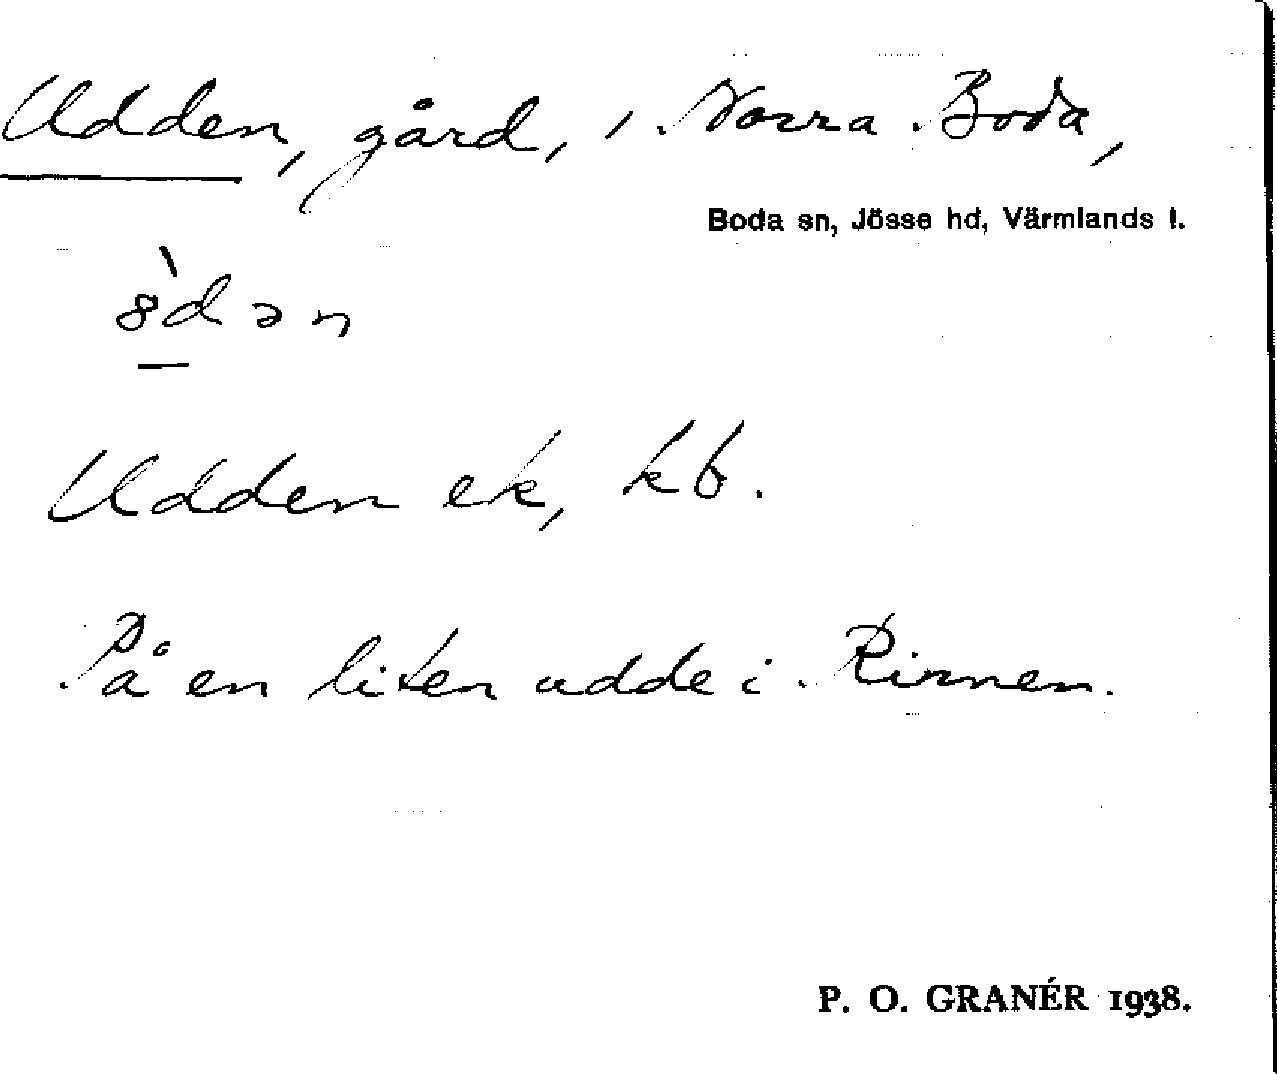 Udden, gård, i Norra Boda,
Boda sn, Jösse hd, Värmlands l.
8̀dən
Udden ek, kb.
På en liten udde i Rinnen.
P. O. GRANÉR 1938.